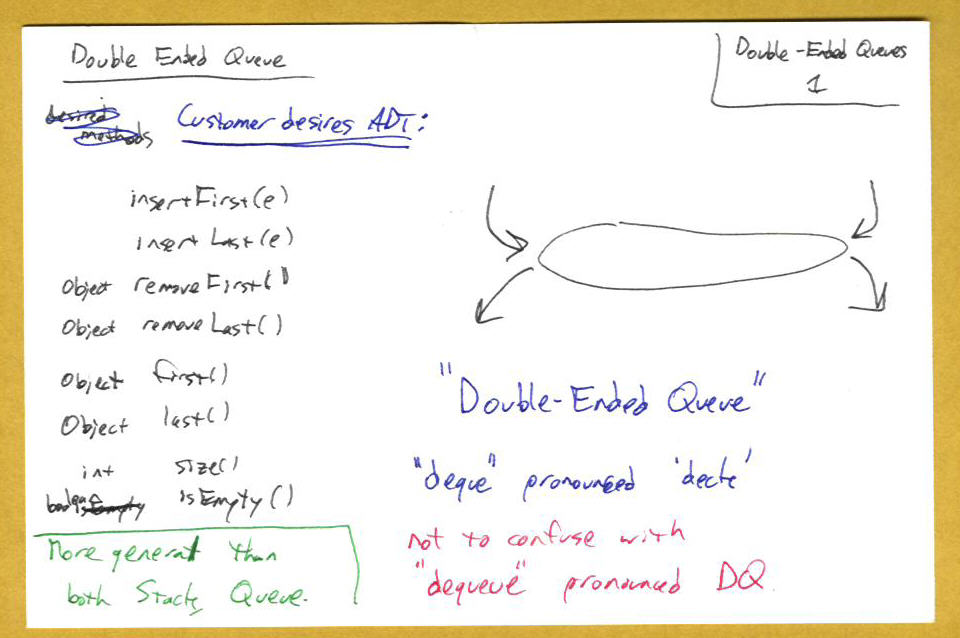 Double Ended Queue
Double-Ended Queues
1
desired
methods
Customer desires ADT:
insertFirst(e)
insertLast(e)
Object removeFirst()
Object removeLast()
Object first()
Object last()
int size()
boolean isEmpty isEmpty()
More general than
both Stack, Queue.
"Double-Ended Queue"
"deque" pronounced 'deck'
not to confuse with
"dequeue" pronounced DQ.